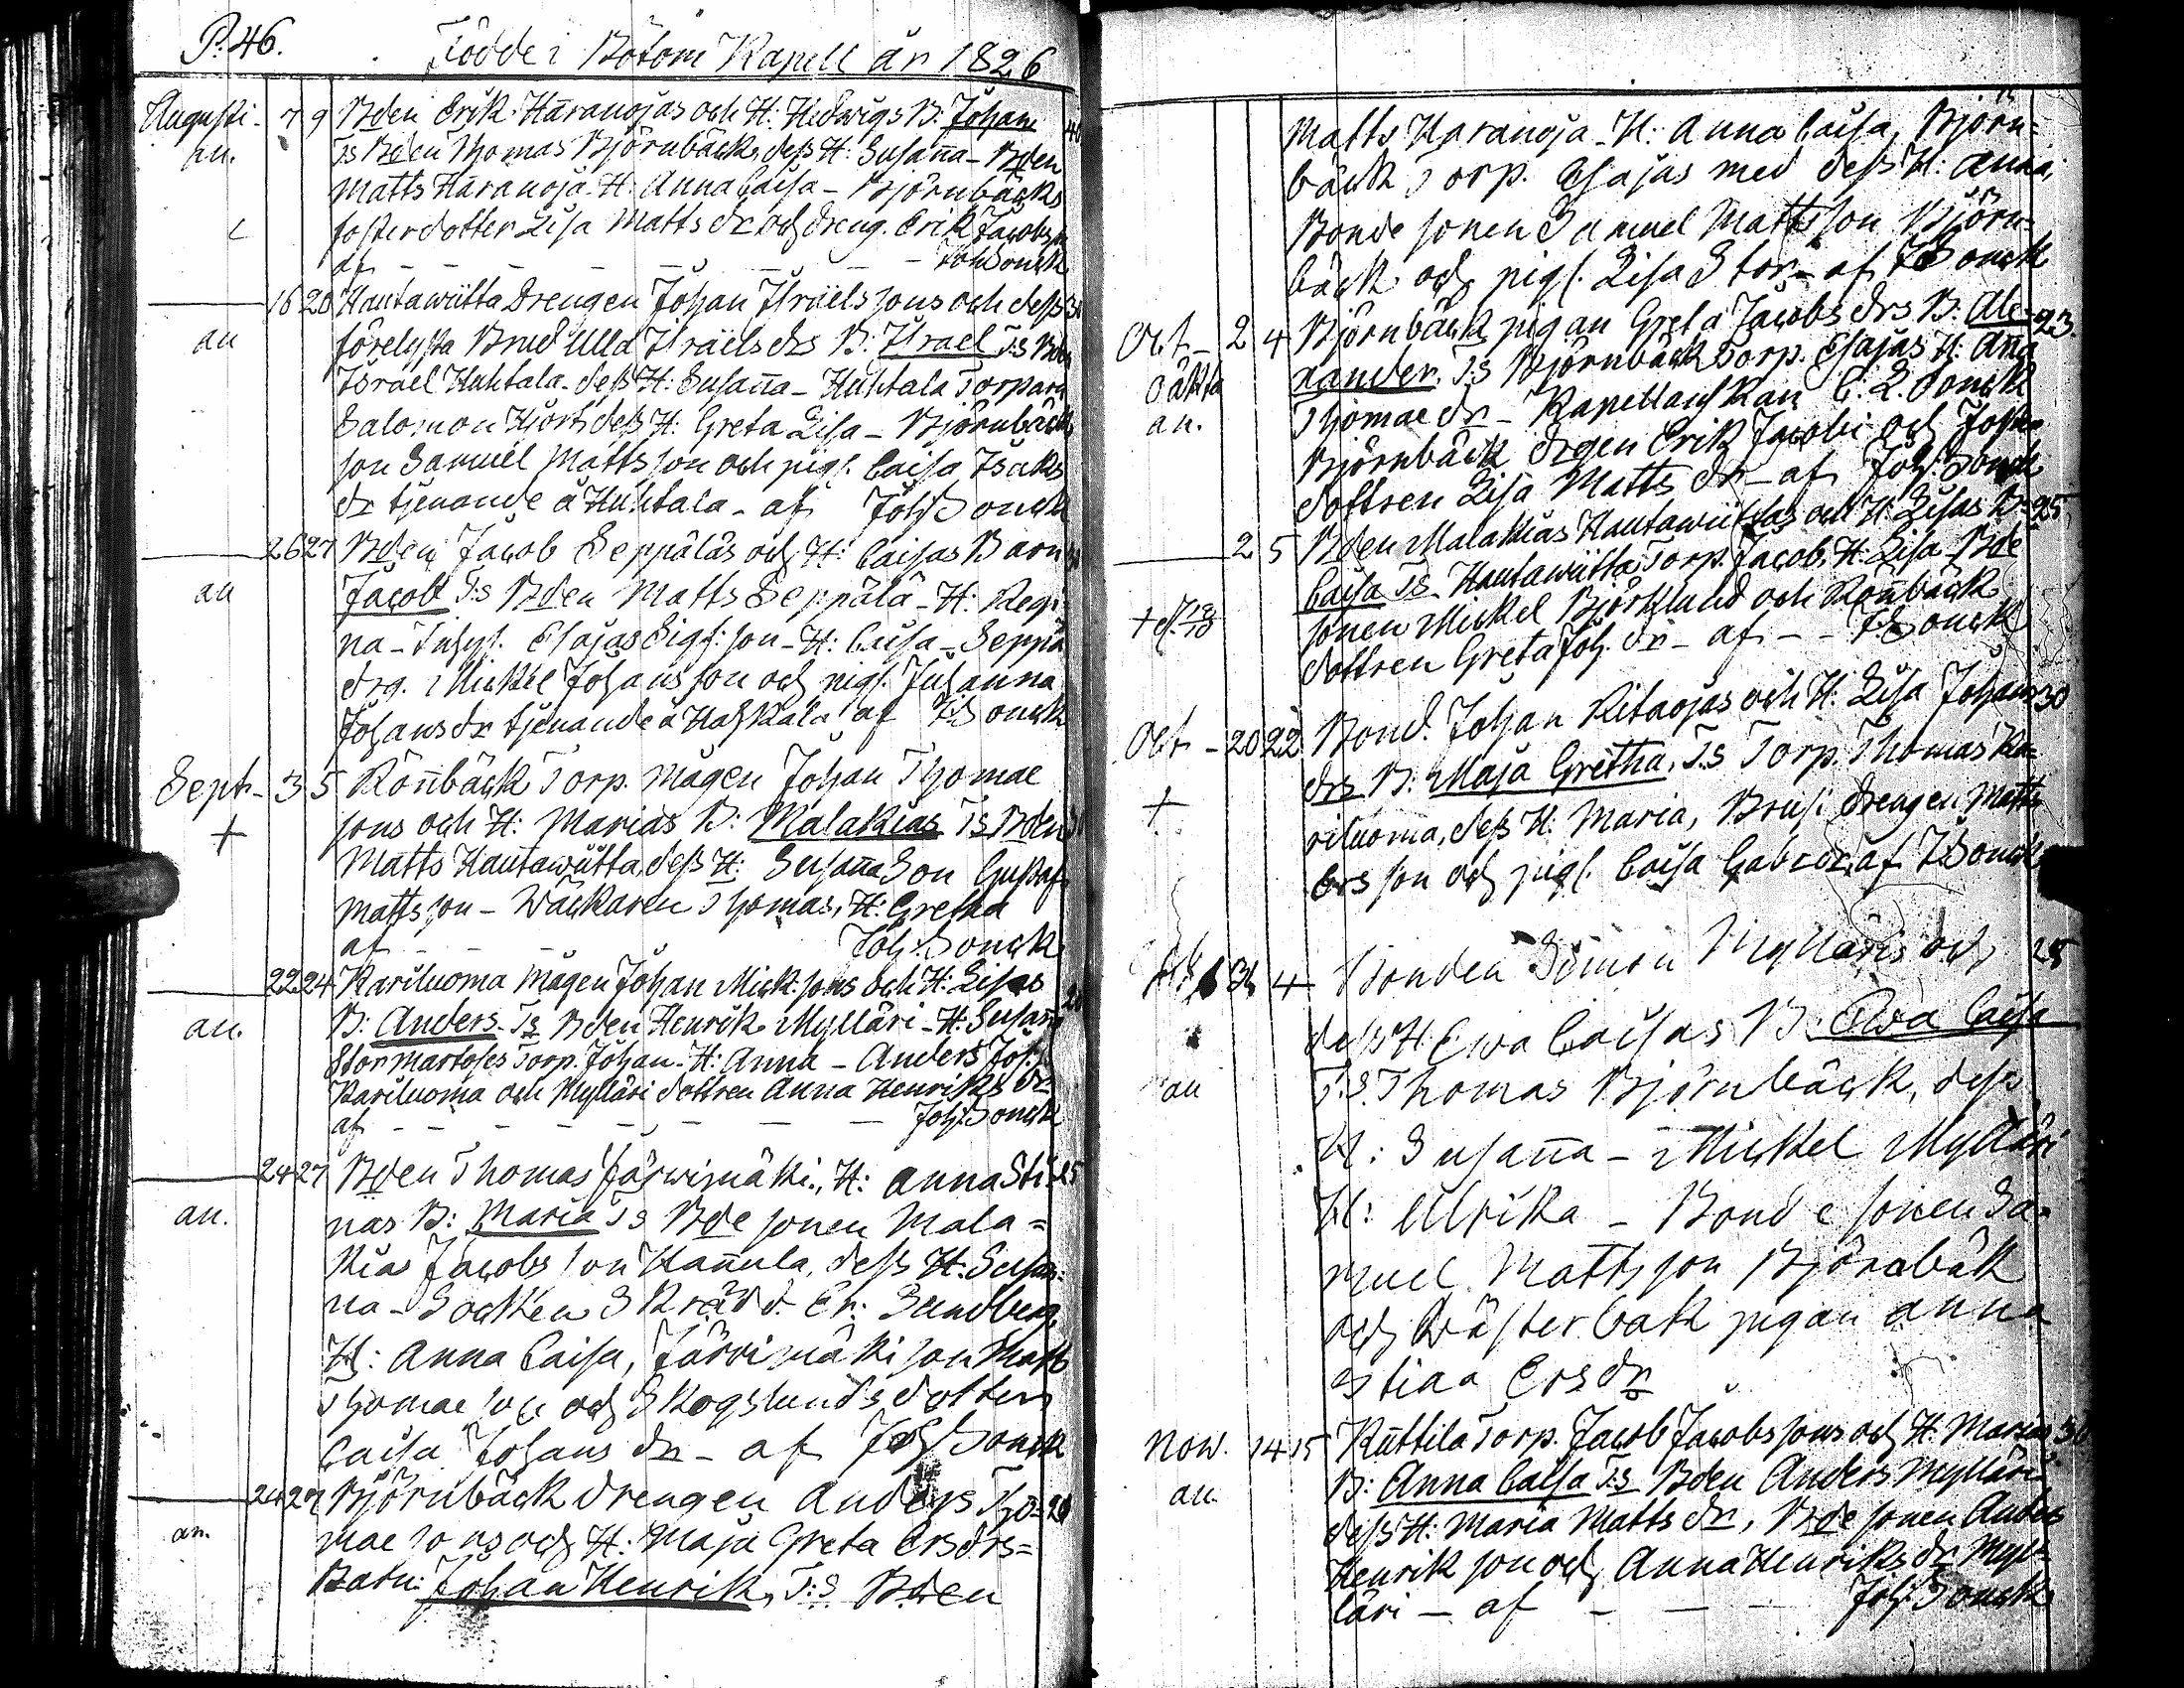 P. 46. Födde i Bötom Kapell år 1826
Augusti - 7 9 Bden Erik Haranojas och H: Hedwigs B. Johan
an. Ts Bden Thomas Björnbäck, dess H: Susaña - Bden
Matts Haranoja - H: Anna Caisa - Björnbäcks
fosterdotter Lisa Matts dr och dreng. Erik Jacobss
af - - - - - Joh Sonck
16 20 Hautawiitta Drengen Johan Israels sons och dess 30
an förelysta Brud Ulla Israels drs B: Israel T:s Bden
Israel Huhtala - dess H: Susaña - Huhtala Torparn
Salomon Hjort, dess H: Greta Lisa - Björnbäck
son Samuel Matts son och pig. Caisa Isaks
dr tjenande å Huhtala - af Joh Sonck
26 27 Bden Jacob Seppäläs och H: Caisas Barn
an Jacob T:s Bden Matts Seppälä - H: Regi
na - Inhys. Esajas Sigf: son - H: Caisa - Seppä
drg. Mickel Johansson och pig. Juhanna
Johans dr tjenande å Hahkala af J Sonck
Sept - 3 5 Röñbäck Torp. mågen Johan Thomae
+ sons och H: Marias B: Malakias Ts Bden
Matts Hautawiitta, dess H: Susaña Son Gustaf
Matts son - Wäckaren Thomas, H: Gretha
af - - - Joh: Sonck
22 24 Kariluoma mågen Johan Mick: sons och H: Lisas
an. B: Anders - Ts Bden Henrik Mylläri - H: Susañ
Stormartoses Torp. Johan - H: Anna - Anders Joh:
Kariluoma och Mylläri dottren Anna Henriks dr
af - - - - - - Joh: Sonck
24 27 Bden Thomas Järwimäki, H: Anna Sti- 25
an. nas B: Maria Ts Bde sonen Mala=
kias Jacobs son Hañula, dess H: Susañ:
na - Socken Skrädd. Er: Sundberg
H: Anna Caisa, Järvimäki son Matts
Thomae son och Skogslunds dotter
Caisa Johans dr - af Joh Sonck
24 27 Björnbäck drengen Anders Tho- 20
an. mae sons och H: Maja Greta Ers drs=
Barn: Johan Henrik, T:s Bden
Matts Haranoja - H: Anna Caisa, Björn=
bäck Torp. Esajas med dess H: Anna,
Bonde sonen Samuel Matts son Björn=
bäck och pig. Lisa Stor - af J Sonck
Oct - 2 4 Björnbäck pigan Greta Jacobs drs B: Ale- 23.
oäkta xander. T:s Björnbäck Torp. Esajas H: Aña
an. Thomae dr - Kapellanskan C: L: Sonck
Björnbäck drgen Erik Jacobi och Foster
dottren Lisa Matts dr - af Joh: Sonck
2 5 Bden Malakias Hautawiittas och H: Lisas B: 25
Caisa Ts - Hautawiitta Torp. Jacob, H: Lisa - Bde
+ d. 18/10 sonen Mickel Björklund och Röñbäck
dottren Greta Joh. dr - af - - J Sonck
Oct - 20 22 Bond. Johan Ritaojas och H: Lisa Johans 30
drs B: Maja Gretha. T:s Torp. Thomas Ka=
+ riluoma, dess H: Maria, Brus: drengen Matts
Ers son och pig. Caisa Gabr dr, af J Sonck
4 Bonden Simon Mylläris och 25
dess H: Ewa Caisas B: Ewa Caisa
an T.S. Thomas Björnbäck, dess
H: Susaña - Mickel Mylläri
H: Ulrika - Bonde sonen Sa-
muel Matts son Björnbäk
och Wästerbak pigan Anna
Stina Ers dr
Now. 14 15 Kuttila Torp. Jacob Jacobs sons och H: Marias 30
an. B: Anna Caisa T:s Bden Anders Mylläri
dess H: Maria Matts dr, Bde sonen Anders
Henrik son och Anna Henriks dr Myl=
läri - af - - - Joh: Sonck